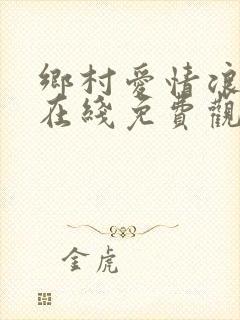 鄉村愛情浪
在綫免費觀
金虎